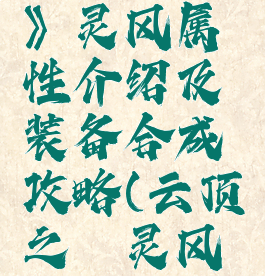 》灵风属
性介绍及
装备合成
攻略(云顶
之　灵风